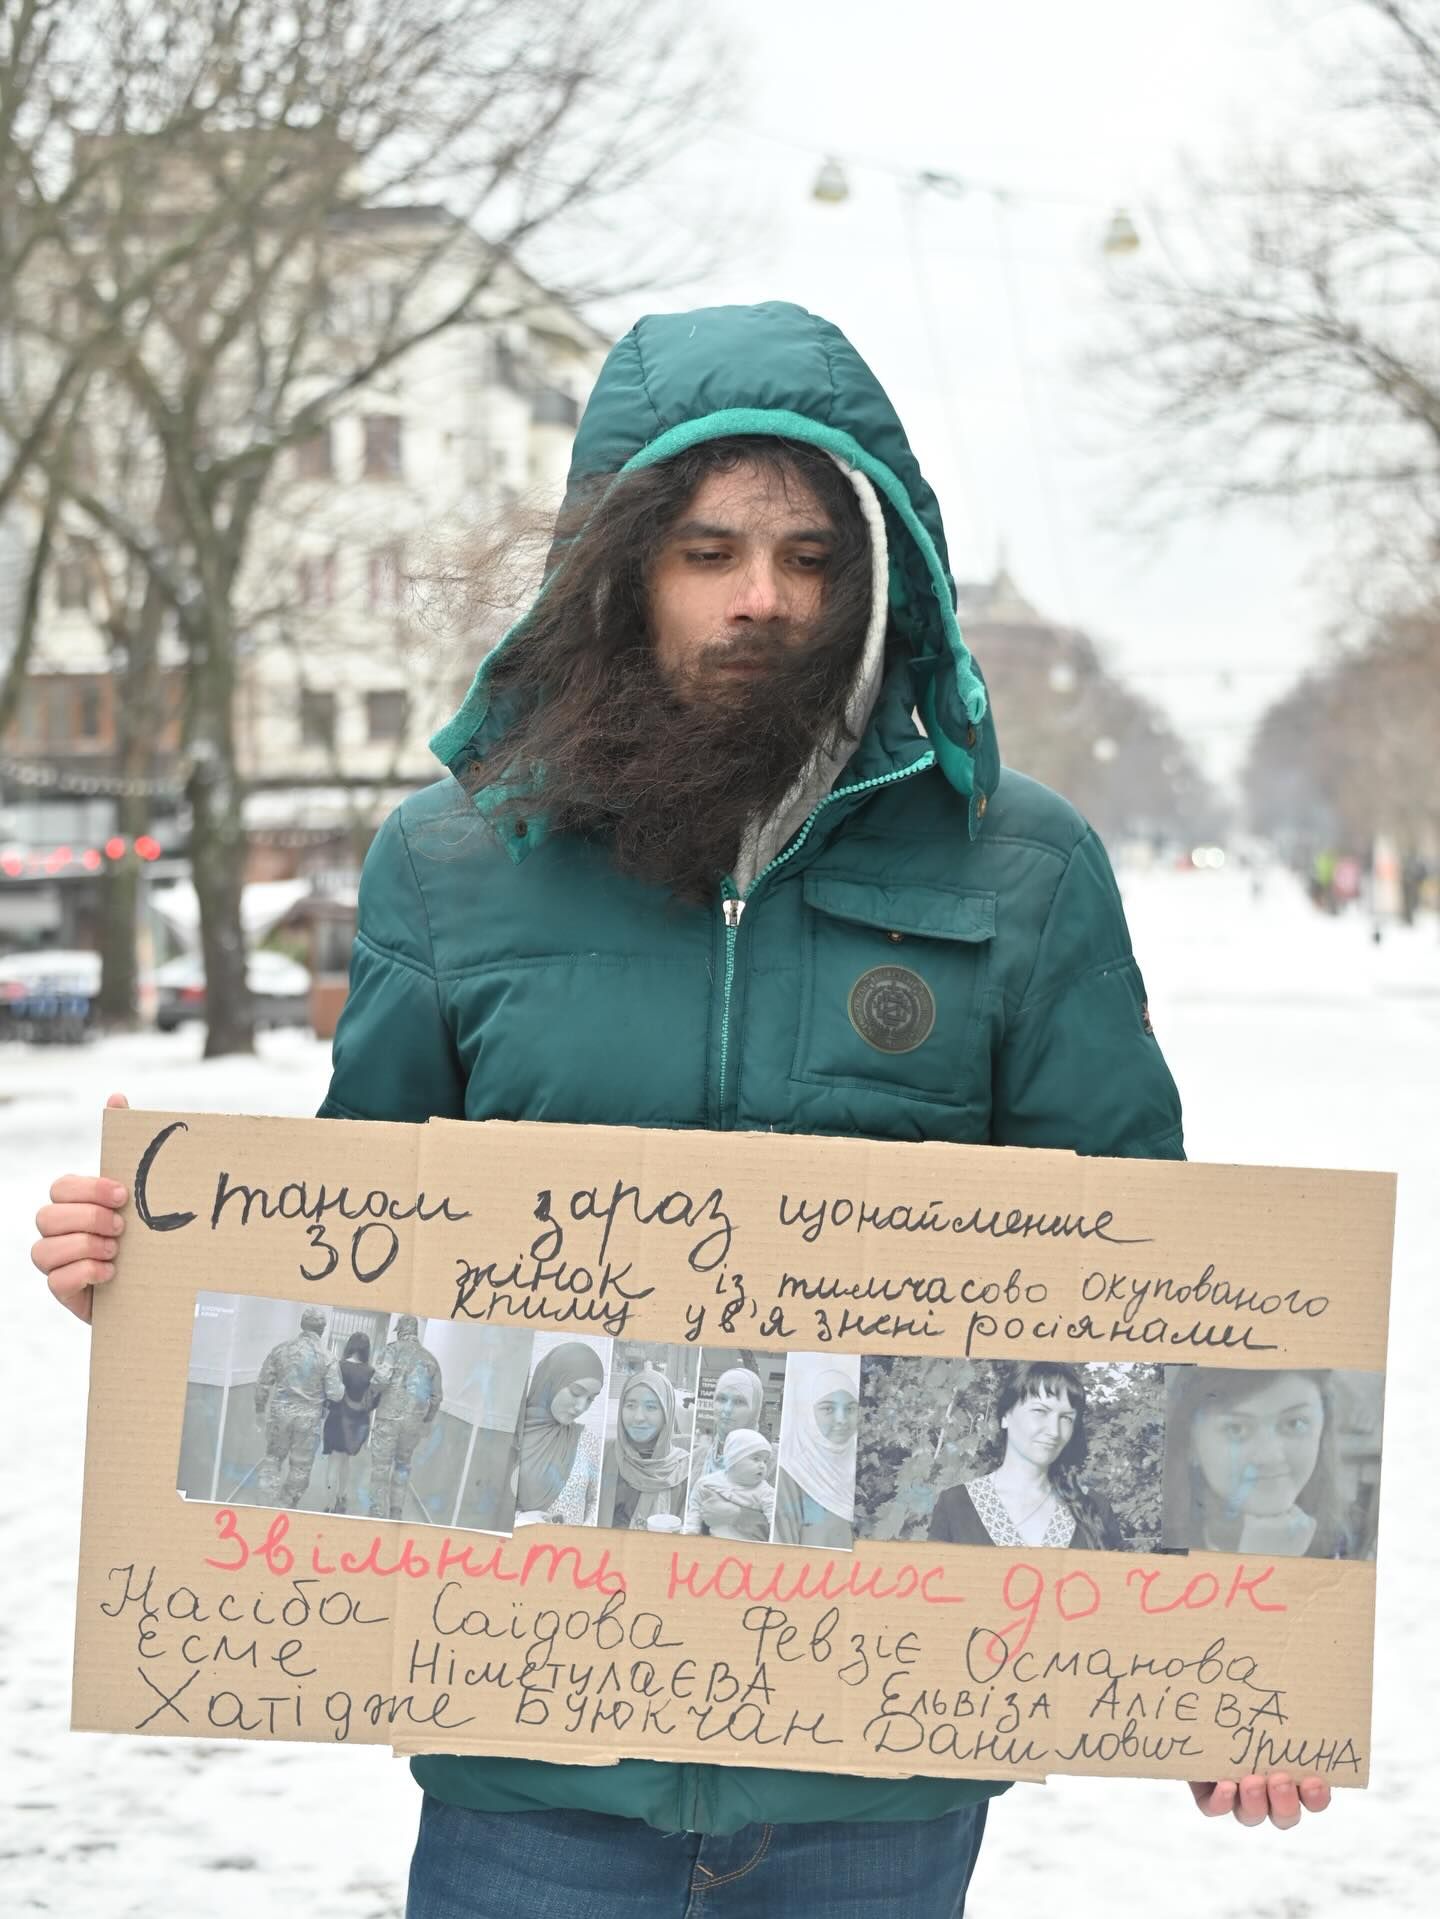 Станом зараз щонайменше
30 жінок із тимчасово окупованого
Криму ув'язнені росіянами.
Звільніть наших дочок
Насіба Саїдова Февзіє Османова
Есме Німетулаєва Ельвіза Алієва
Хатідже Буюкчан Данилович Ірина